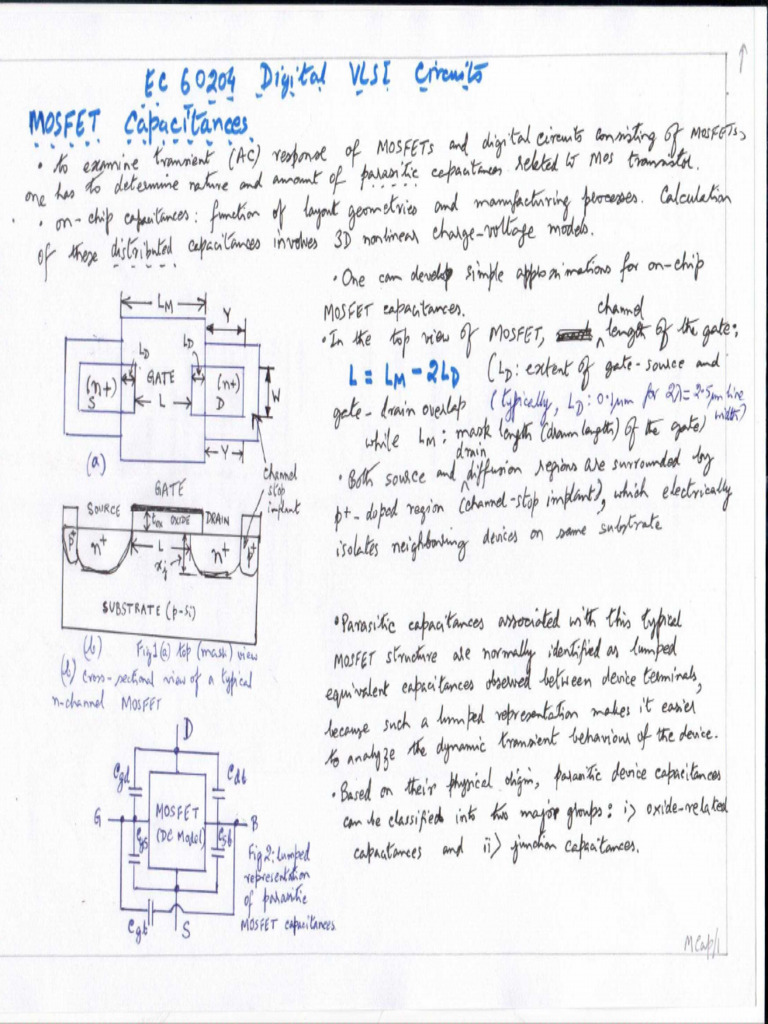 EC 60204 Digital VLSI Circuits
MOSFET Capacitances
• to examine transient (AC) response of MOSFETs and digital circuits consisting of MOSFETs,
one has to determine nature and amount of parasitic capacitances related to MOS transistor.
• on-chip capacitances: function of layout geometries and manufacturing processes. Calculation
of these distributed capacitances involves 3D nonlinear charge-voltage models.
• One can develop simple approximations for on-chip
MOSFET capacitances.
• In the top view of MOSFET, channel length of the gate:
L = LM - 2LD (LD: extent of gate-source and
gate-drain overlap (typically, LD: 0.1μm for 2λ = 2.5μm line width)
while LM: mask length (drawn length) of the gate)
• Both source and drain diffusion regions are surrounded by
p+-doped region (channel-stop implant), which electrically
isolates neighbouring devices on same substrate
LM
Y
LD
LD
(n+)
S
GATE
(n+)
D
W
L
Y
(a)
channel
stop
implant
GATE
SOURCE
tox OXIDE
DRAIN
p+
n+
L
xj
n+
p+
SUBSTRATE (p-Si)
(b)
Fig 1 (a) top (mask) view
(b) cross-sectional view of a typical
n-channel MOSFET
• Parasitic capacitances associated with this typical
MOSFET structure are normally identified as lumped
equivalent capacitances observed between device terminals,
because such a lumped representation makes it easier
to analyze the dynamic transient behaviour of the device.
• Based on their physical origin, parasitic device capacitances
can be classified into two major groups: i) oxide-related
capacitances and ii) junction capacitances.
D
Cgd
Cdb
G
MOSFET
(DC Model)
B
Cgs
Csb
Cgb
S
Fig 2: lumped
representation
of parasitic
MOSFET capacitances
MCap/1